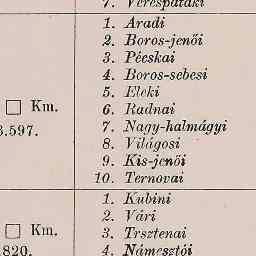 7. Verespataki
1. Aradi
2. Boros-jenői
3. Pécskai
4. Boros-sebesi
5. Eleki
□ Km. 6. Radnai
3.597. 7. Nagy-halmágyi
8. Világosi
9. Kis-jenői
10. Ternovai
1. Kubini
2. Vári
□ Km. 3. Trsztenai
820. 4. Námesztói